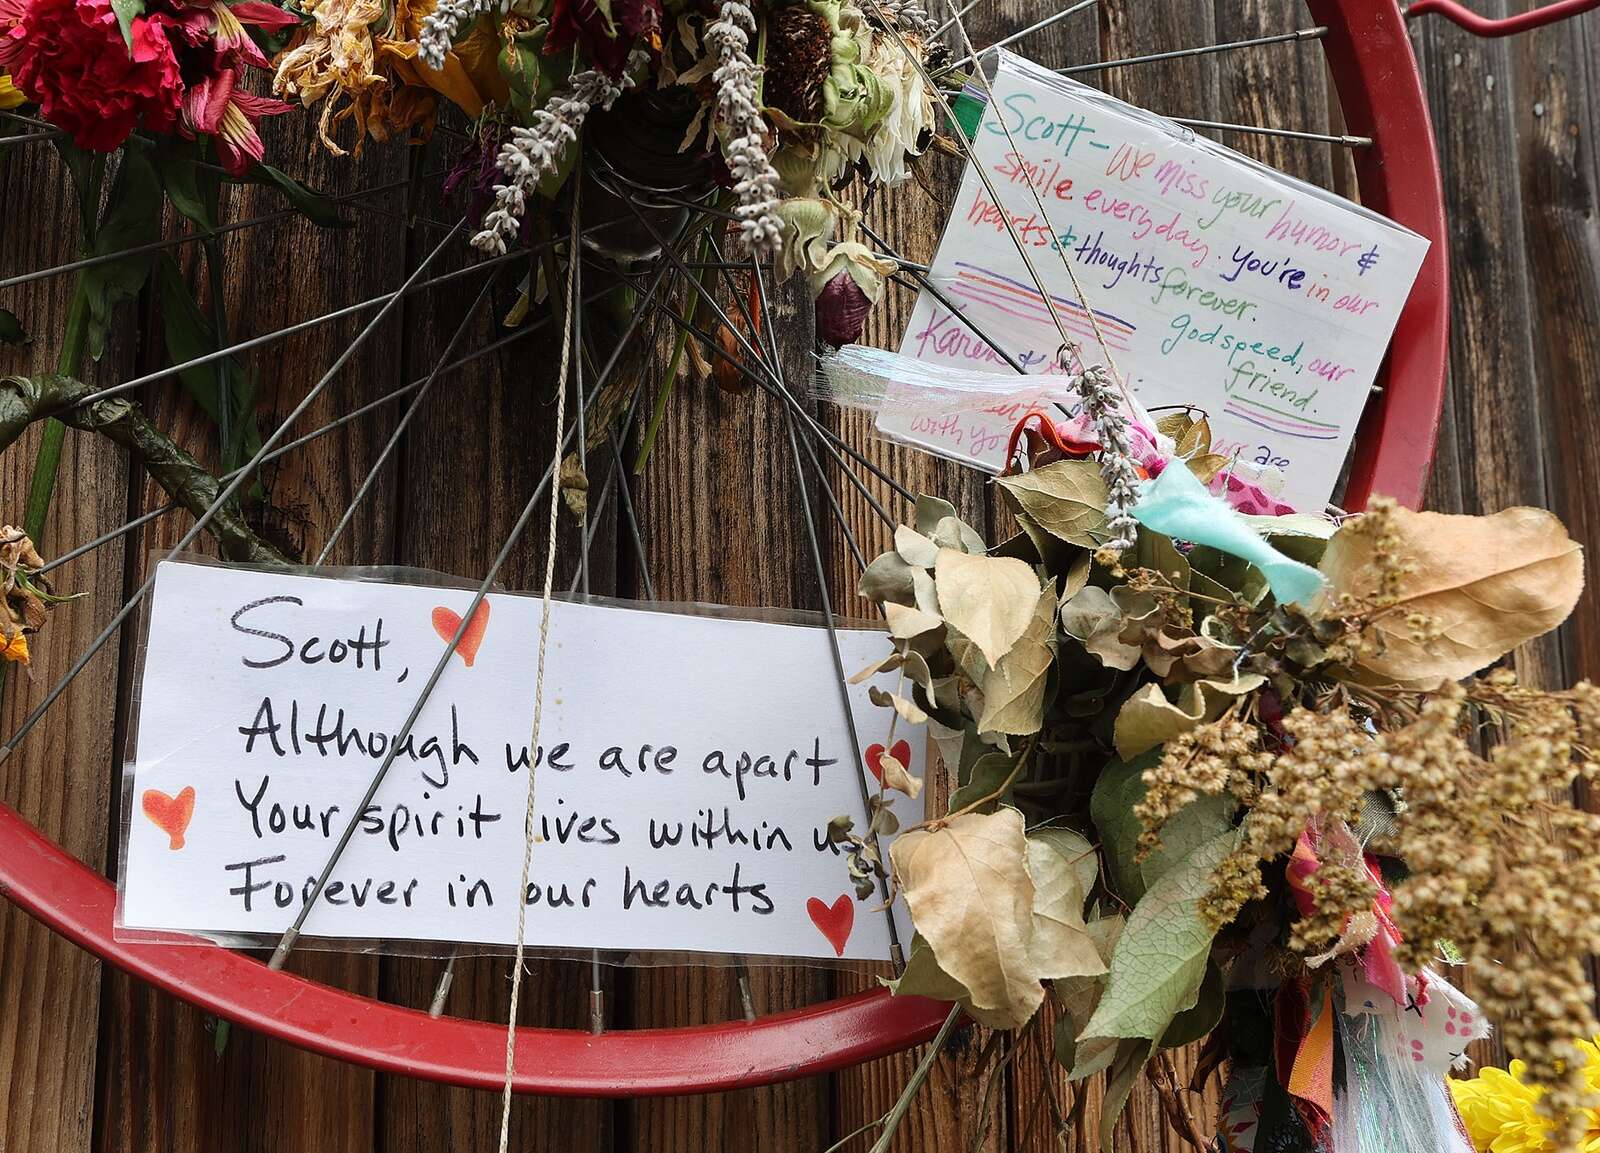 Scott - We miss your humor &
smile everyday. You're in our
hearts & thoughts forever.
Godspeed, our
friend.
Karen &
with you are
Scott,
Although we are apart
Your spirit lives within us
Forever in our hearts